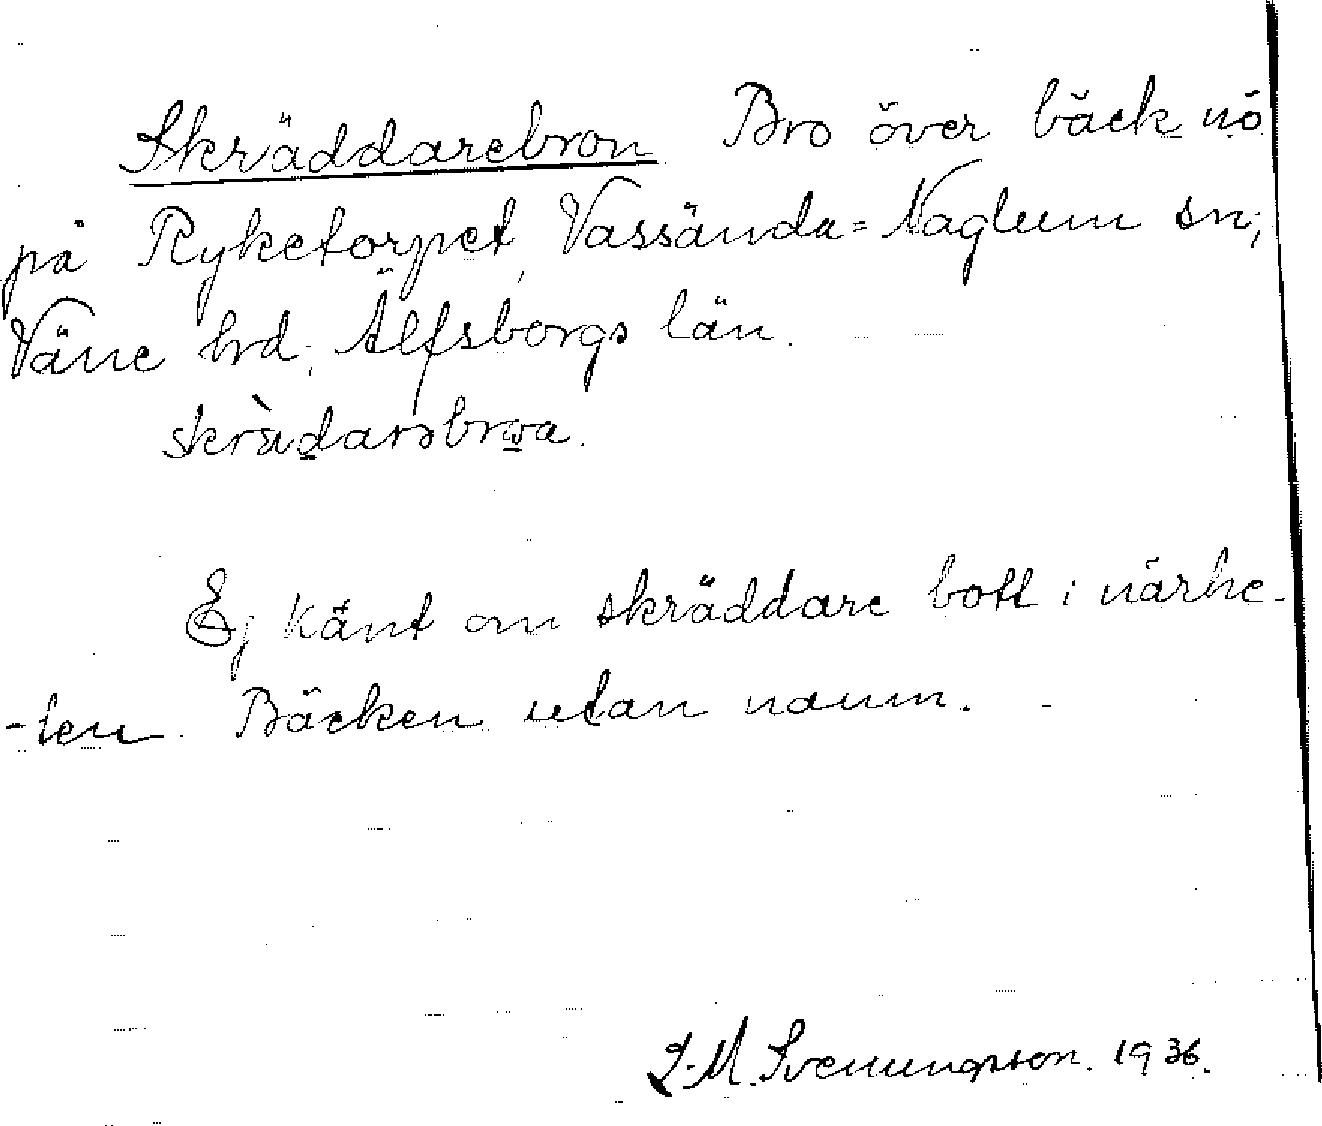 Skräddarebron Bro över bäck nö
på Ryketorpet, Vassända=Naglum sn;
Väne hrd; Älfsborgs län.
skrädarəbrωa.
Ej känt om skräddare bott i närhe-
-ten. Bäcken utan namn.
L.M. Svenungsson. 1936.